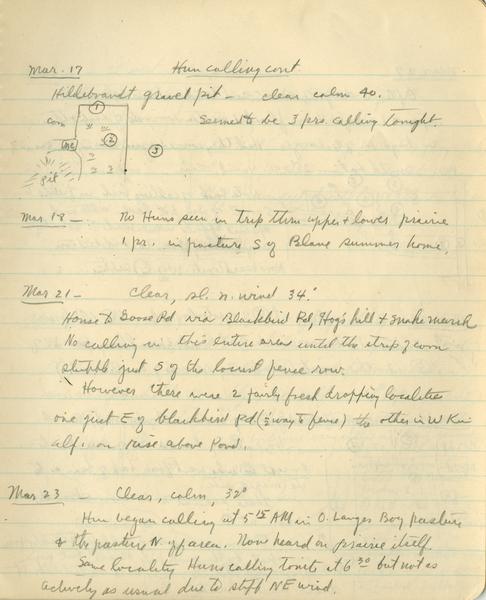 Mar. 17 Hun calling cont
Hildebrandt gravel pit - clear calm 40.
Seemed to be 3 prs. calling tonight.
1
corn
2
me
3
pit
Mar. 18 - No Huns seen in trip thru upper & lower prairie
1 pr. in pasture S of Blane summer home.
Mar 21 - Clear, sl. n. wind 34°
House to Goose Pd via Blackbird Pd, Hog's hill & snake marsh
No calling in this entire area until the strip of corn
stubble just S of the locust fence row.
However there were 2 fairly fresh dropping localities
one just E of blackbird Pd (½ way to fence) the other in W
alf. on rise above Pond.
Mar 23 - Clear, calm, 32°
Hun began calling at 5 15 AM in O. Langes Boy pasture
& the pasture N of area. None heard on prairie itself.
Same locality Huns calling tonite at 6 30 but not as
actively as usual due to stiff NE wind.